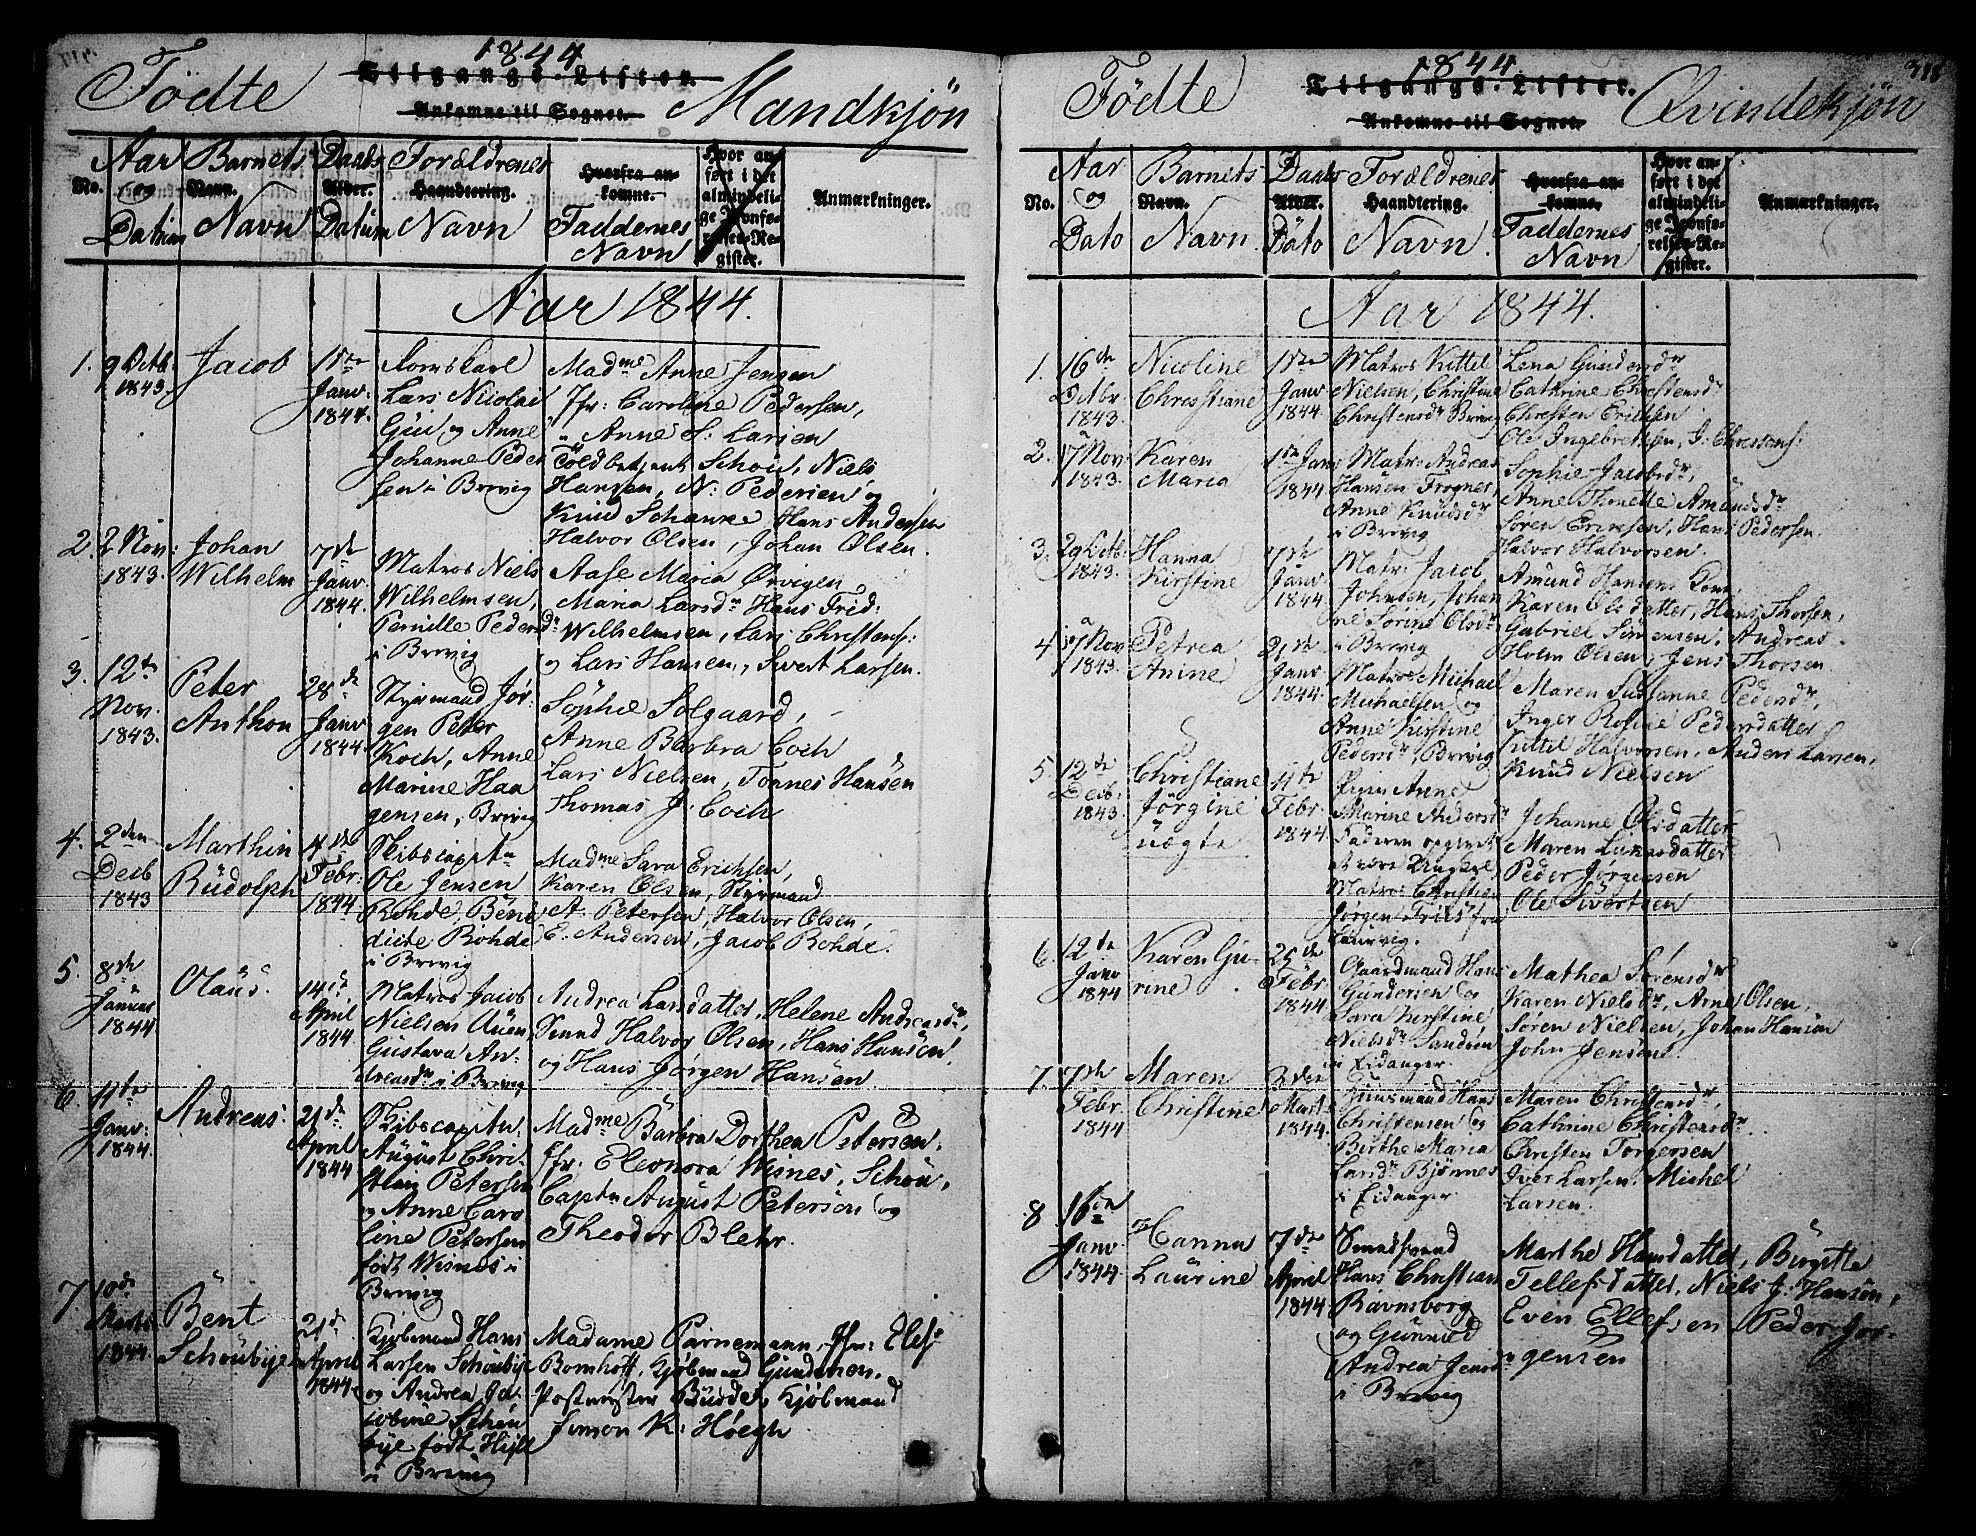 1844
Födte Tilgangs-Lister. Mandkjøn
Ankomne til Sognet.
No. Aar og Datum
Barnets Navn. Navn
Daabs Alder. Datum
Forældrenes Haandtering. Navn
Hvorfra ankomne. Faddernes Navn
Hvor anført i det almindelige Jevnførelses-Register.
Anmærkninger.
Aar 1844.
1. 9 Octb. 1843.
Jacob
Janv. 1844.
Lars Nicolai
og Anne
Johanne Peder
sen i Brevig
Madme Anne Jensen
Jfr: Caroline Pedersen,
" Anne S: Larsen
Toldbetjent Schou, Niels
Hansen, N: Pedersen og
Knud Schanke, Hans Andersen
Halvor Olsen, Johan Olsen.
2. 2 Nov: 1843.
Johan
Wilhelm
7de Janv. 1844.
Matros Niels
Wilhelmsen,
Pernille Pedersdr
i Brevig
Aase Maria Ørvigen
Maria Larsdr Hans Frid:
Wilhelmsen, Lars Christens:
og Lars Hansen, Sivert Larsen.
3. 12te Nov. 1843.
Peter
Anthon
28de Janv 1844.
Styrmand Jør-
gen Peter
Koch, Anne
Marine Haa
gensen, Brevig
Sophie Solgaard,
Anne Barbra Coch
Lars Nielsen, Tønnes Hansen
Thomas J. Coch
4. 2den Decb 1843
Marthin
Rüdolph
4de Febr: 1844
Skibscaptn
Ole Jensen
Rohde, Bene
dicte Rohde
i Brevig
Madme Sara Erichsen,
Karen Olsen, Styrmand
A. Petersen, Halvor Olsen,
E. Andersen, Jacob Rohde.
5. 8de Januar 1844
Olaüs.
14de April 1844
Matros Jacob
Nielsen
Gustava An-
dreasdr i Brevig
Andrea Larsdatter, Helene Andreasdr,
Smed Halvor Olsen, Hans Hansen
og Hans Jørgen Hansen
6. 11te Janv: 1844.
Andreas.
21de April 1844
Skibscaptn.
August Chri-
stian Petersen
og Anne Caro
line Petersen
født Wisnes i
Brevig
Madme Barbra Dorthea Petersen,
Jfr: Eleonora Wisnes, Schou,
Captn August Petersen og
Theodor Blehr.
7. 10de Marts 1844.
Bent
Schoubye
21de April 1844
Kjøbmand Hans
Larsen Schoubye
og Andrea Ja-
cobine Schou
bye født
i Brevig
Madame Parnemann, Jfr: Elef:
Bomhoff, Kjøbmand Gundersen,
Postmester Budde, Kjøbmand
Simon K: Høegh
1844. 318
Födte Tilgangs-Lister. Qvindekjøn
Ankomne til Sognet.
No. Aar og Dato
Barnets Navn. Navn.
Daabs Alder. Dato
Forældrenes Haandtering. Navn.
Hvorfra ankomne. Faddernes Navn
Hvor anført i det almindelige Jevnførelses-Register.
Anmærkninger.
Aar 1844.
1. 16de Octbr. 1843.
Nicoline
Christiane
1ste Janv 1844.
Matros Kittel
Nielsen, Christine
Christensdr Brevig
Lena Gundersdr
Cathrine Christensdr
Christen Ericksen
Ole Ingebretsen, J: Christens:
2. 17 Nov: 1843.
Karen
Maria
1ste Janv 1844
Matr: Andreas
Hansen Frogner,
Anne Knudsdr
i Brevig
Sophie Jacobsdr,
Anne Thonette Amundsdr
Søren Ericksen, Hans Pedersen.
Halvor Halvorsen.
3. 29 Octb: 1843.
Hanna
Kirstine
7de Janv 1844.
Matr: Jacob
Johnsen, Johan
ne Sørine Olsdr
i Brevig
Amund Hansens Kone,
Karen Olsdatter, Hans Thorsen,
Gabriel Simensen, Andreas
Holm Olsen, Jens Thorsen
4 Nov 1843.
Petrea
Anine
21de Janv 1844.
Matros Michael
Michaelsen og
Anne Kirstine
Pedersdr, Brevig
Maren Sussanne Pedersdr,
Inger Rosine Pedersdatter
Kittel Halvorsen, Anders Larsen,
Knud Nielsen
5. 12te Decb. 1843.
Christiane
Jørgine
uægte
4de Febr 1844.
Pigen Anne
Marine Andersdr
Faderen opgivet
at være Ungkarl
Matros Christian
Jørgen Friis fra
Laurvig.
Johanne Olsdatter
Maren Lukasdatter
Peder Jørgensen
Ole Sivertsen
6. 12te Janv 1844
Karen Gu-
rine
25de Febr 1844
Gaardmand Hans
Gundersen og
Sara Kirstine
Nielsdr Sandøen
i Eidanger.
Mathea Sørensdr
Karen Nielsdr, Arne Olsen,
Søren Nielsen, Johan Hansen
John Jensen.
7. 7de Febr. 1844
Maren
Christine
3die Mart. 1844.
Huusmand Hans
Christensen og
Birthe Maria
Larsdr Bjønnes
i Eidanger.
Maren Christensdr,
Cathrine Christensdr.
Christen Torgersen
Iver Larsen. Michel
Larsen.
8. 16de Janv 1844.
Hanna
Laurine
7de April 1844.
Smedsvend
Hans Christian
Ravnsborg
og Gunnild
Andrea Jensdr
i Brevig
Marthe Hansdatter, Birgitte
Tellefsdatter, Niels J. Hansen,
Even Ellefsen, Peder Jør-
gensen